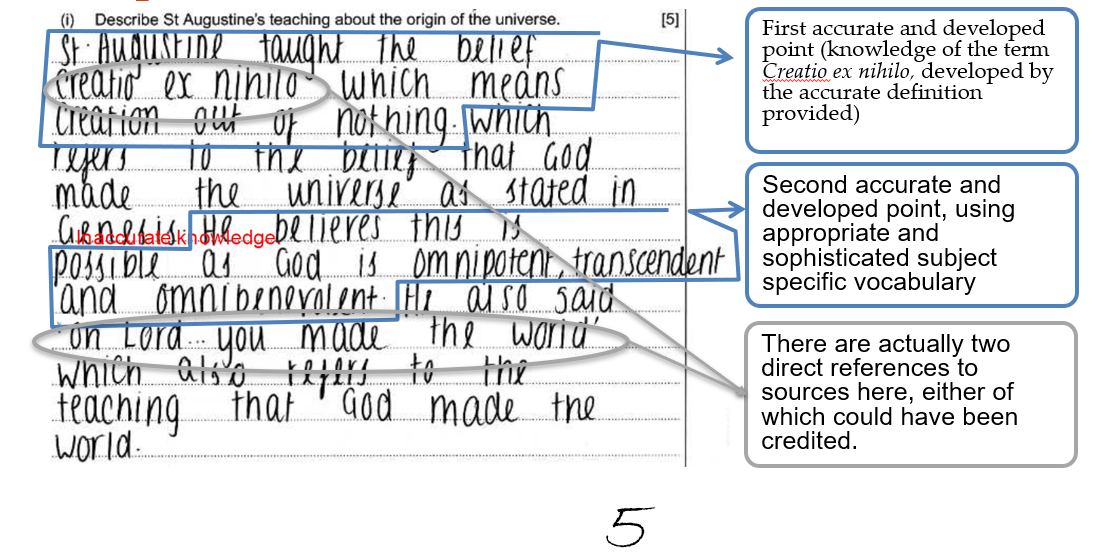 (i) Describe St Augustine's teaching about the origin of the universe. [5]
St. Augustine taught the belief
creatio ex nihilo which means
creation out of nothing. which
refers to the belief that God
made the universe as stated in
Genesis. He believes this is
Inaccurate knowledge
possible as God is omnipotent, transcendent
and omnibenevolent. He also said
'oh Lord... you made the world'
which also refers to the
teaching that God made the
world.
First accurate and developed
point (knowledge of the term
Creatio ex nihilo, developed by
the accurate definition
provided)
Second accurate and
developed point, using
appropriate and
sophisticated subject
specific vocabulary
There are actually two
direct references to
sources here, either of
which could have been
credited.
5